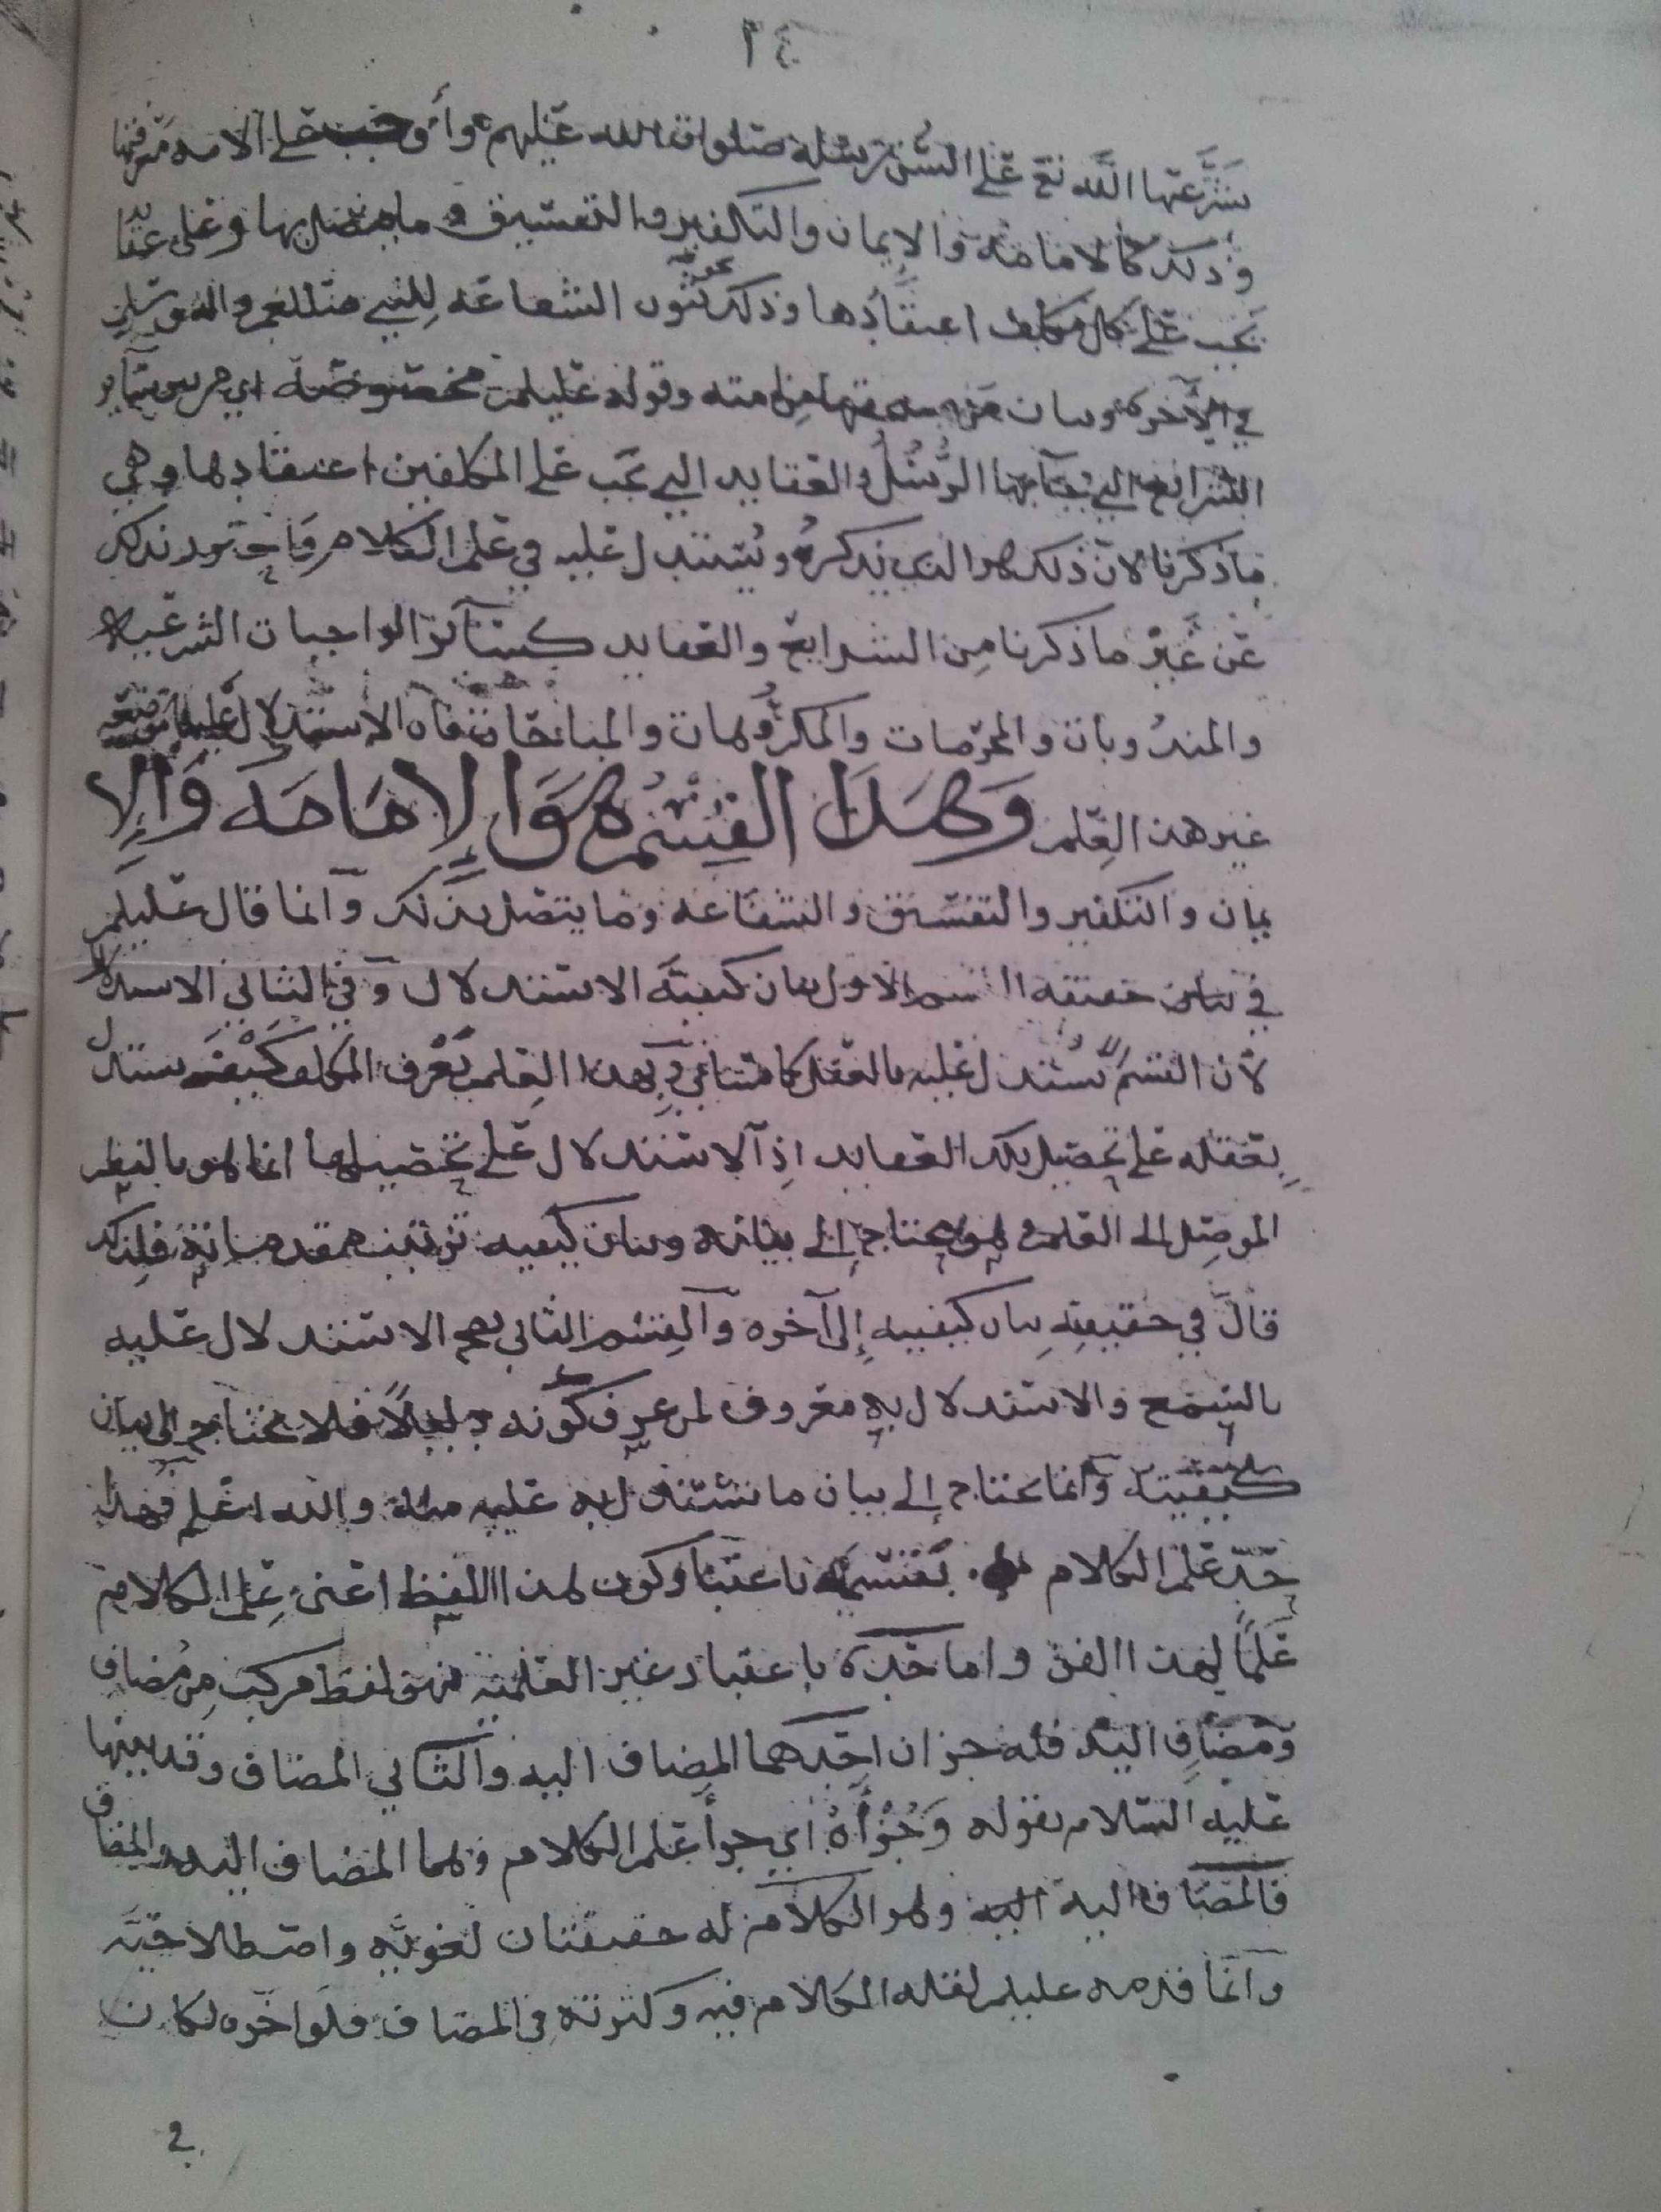 ٢٤
شرعها الله تع على السن رسله صلوات الله عليهم وأوجب على الامه معرفتها
وذلك كالامامه والايمان والتكفير والتفسيق وما يتصل بها وعلى عقايد
يجب على كل مكلف اعتقادها وذلك كثبوت الشفاعه للنبي صللعم واله وسلم
في الآخره وبيان من منها من امته وقوله عليلم مخصوصة اي من ساير
الشرايع التي بها الرسل والعقايد التي يجب على المكلفين اعتقادها وهي
ما ذكرنا لان ذلك هو الذي نذكره ونستدل عليه في علم الكلام فاحترز بذلك
عن غير ما ذكرنا من الشرايع والعقايد كساير الواجبات الشرعيه
والمندوبات والمحرمات والمكروهات والمباحات فان الاستدلال عليها موضعه
غير هذا العلم وهذا القسم هو الامامه والإ
يمان والتكفير والتفسيق والشفاعه وما يتصل بذلك وانما قال عليلم
في بيان حقيقه القسم الاول بيان كيفية الاستدلال وفي الثاني الاستدلال
لأن القسم يستدل عليه بالعقل كما وبهذا العلم يعرف المكلف كيف يستدل
بعقله على تحصيل تلك العقايد اذ الاستدلال على تحصيلها انما هو بالنظر
الموصل الى العلم وهو يحتاج إلى بيانه وبيان كيفيه ترتيب مقدماته فلذلك
قال في حقيقته بيان كيفيه إلى آخره والقسم الثاني يصح الاستدلال عليه
بالسمع والاستدلال به معروف لمن عرف كونه دليلاً فلا يحتاج الى بيان
كيفيته وانما يحتاج إلى بيان ما نستدل به عليه منه والله اعلم فهذا
حد علم الكلام بقسميه باعتبار كون هذا اللفظ اعني علم الكلام
علماً لهذا الفن واما حده باعتبار غير العلميه فهو لفظ مركب من مضاف
ومضاف اليه فله جزان احدهما المضاف اليه والثاني المضاف وقد بينها
عليه السلام بقوله وجزأه اي جزأ علم الكلام وهما المضاف اليه والمضاف
فالمضاف اليه اليه وهو الكلام له حقيقتان لغويه واصطلاحيه
وانما قدمه عليلم لقله الكلام فيه وكثرته في المضاف فلو اخره لكان